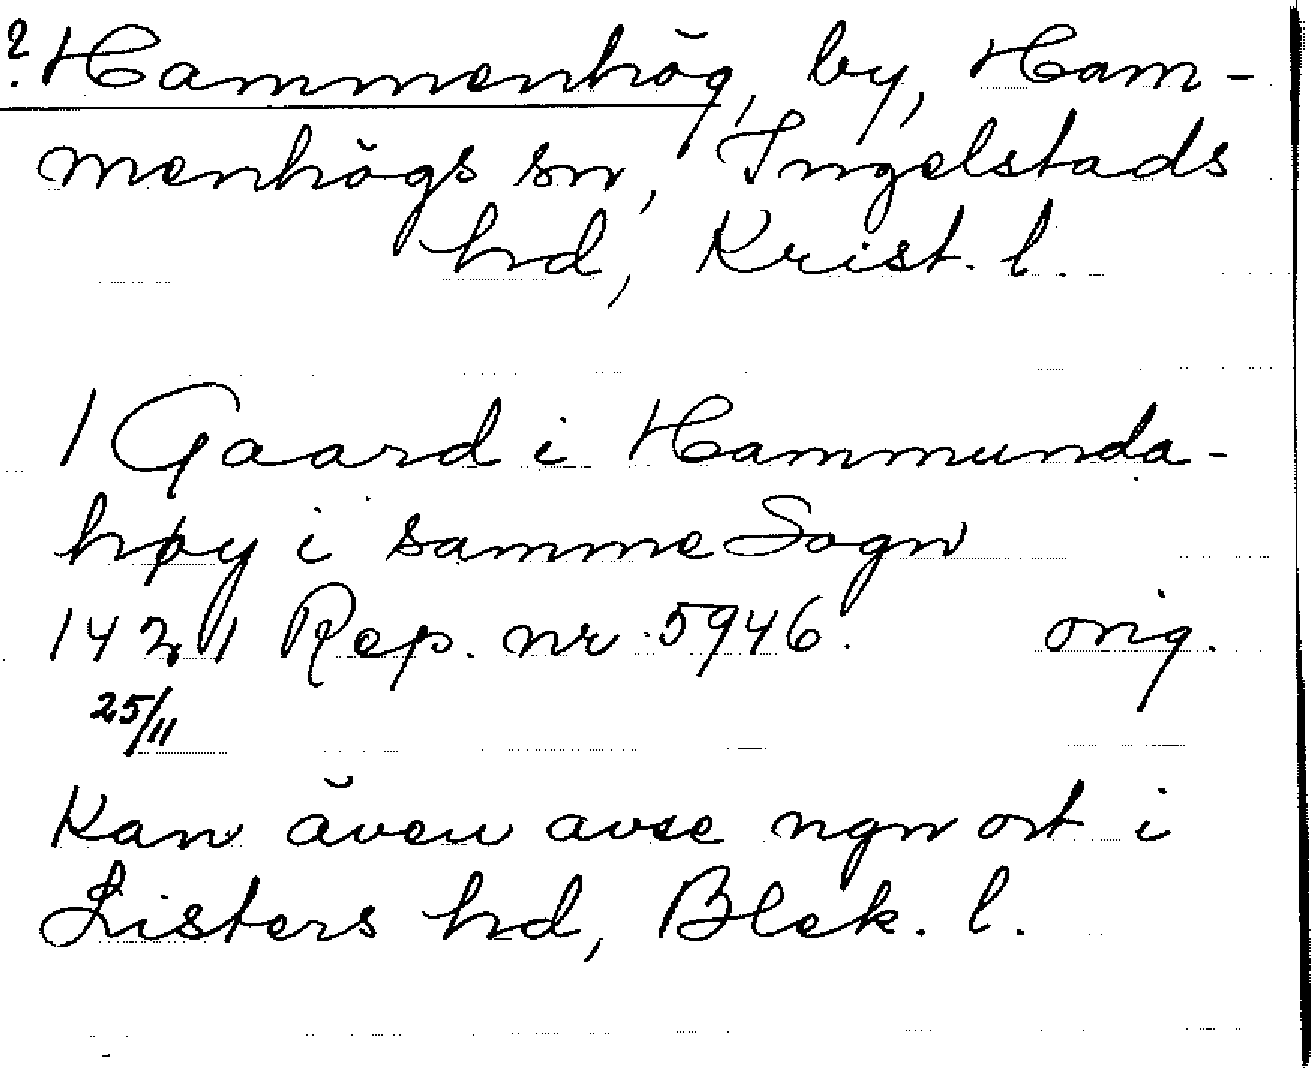 ? Hammenhög, by, Ham-
menhögs sn, Ingelstads
hd, Krist. l.
1 Gaard i Hammunda-
høy i samme Sogn
1421 Rep. nr 5946. orig.
25/11
Kan även avse ngn ort i
Listers hd, Blek. l.